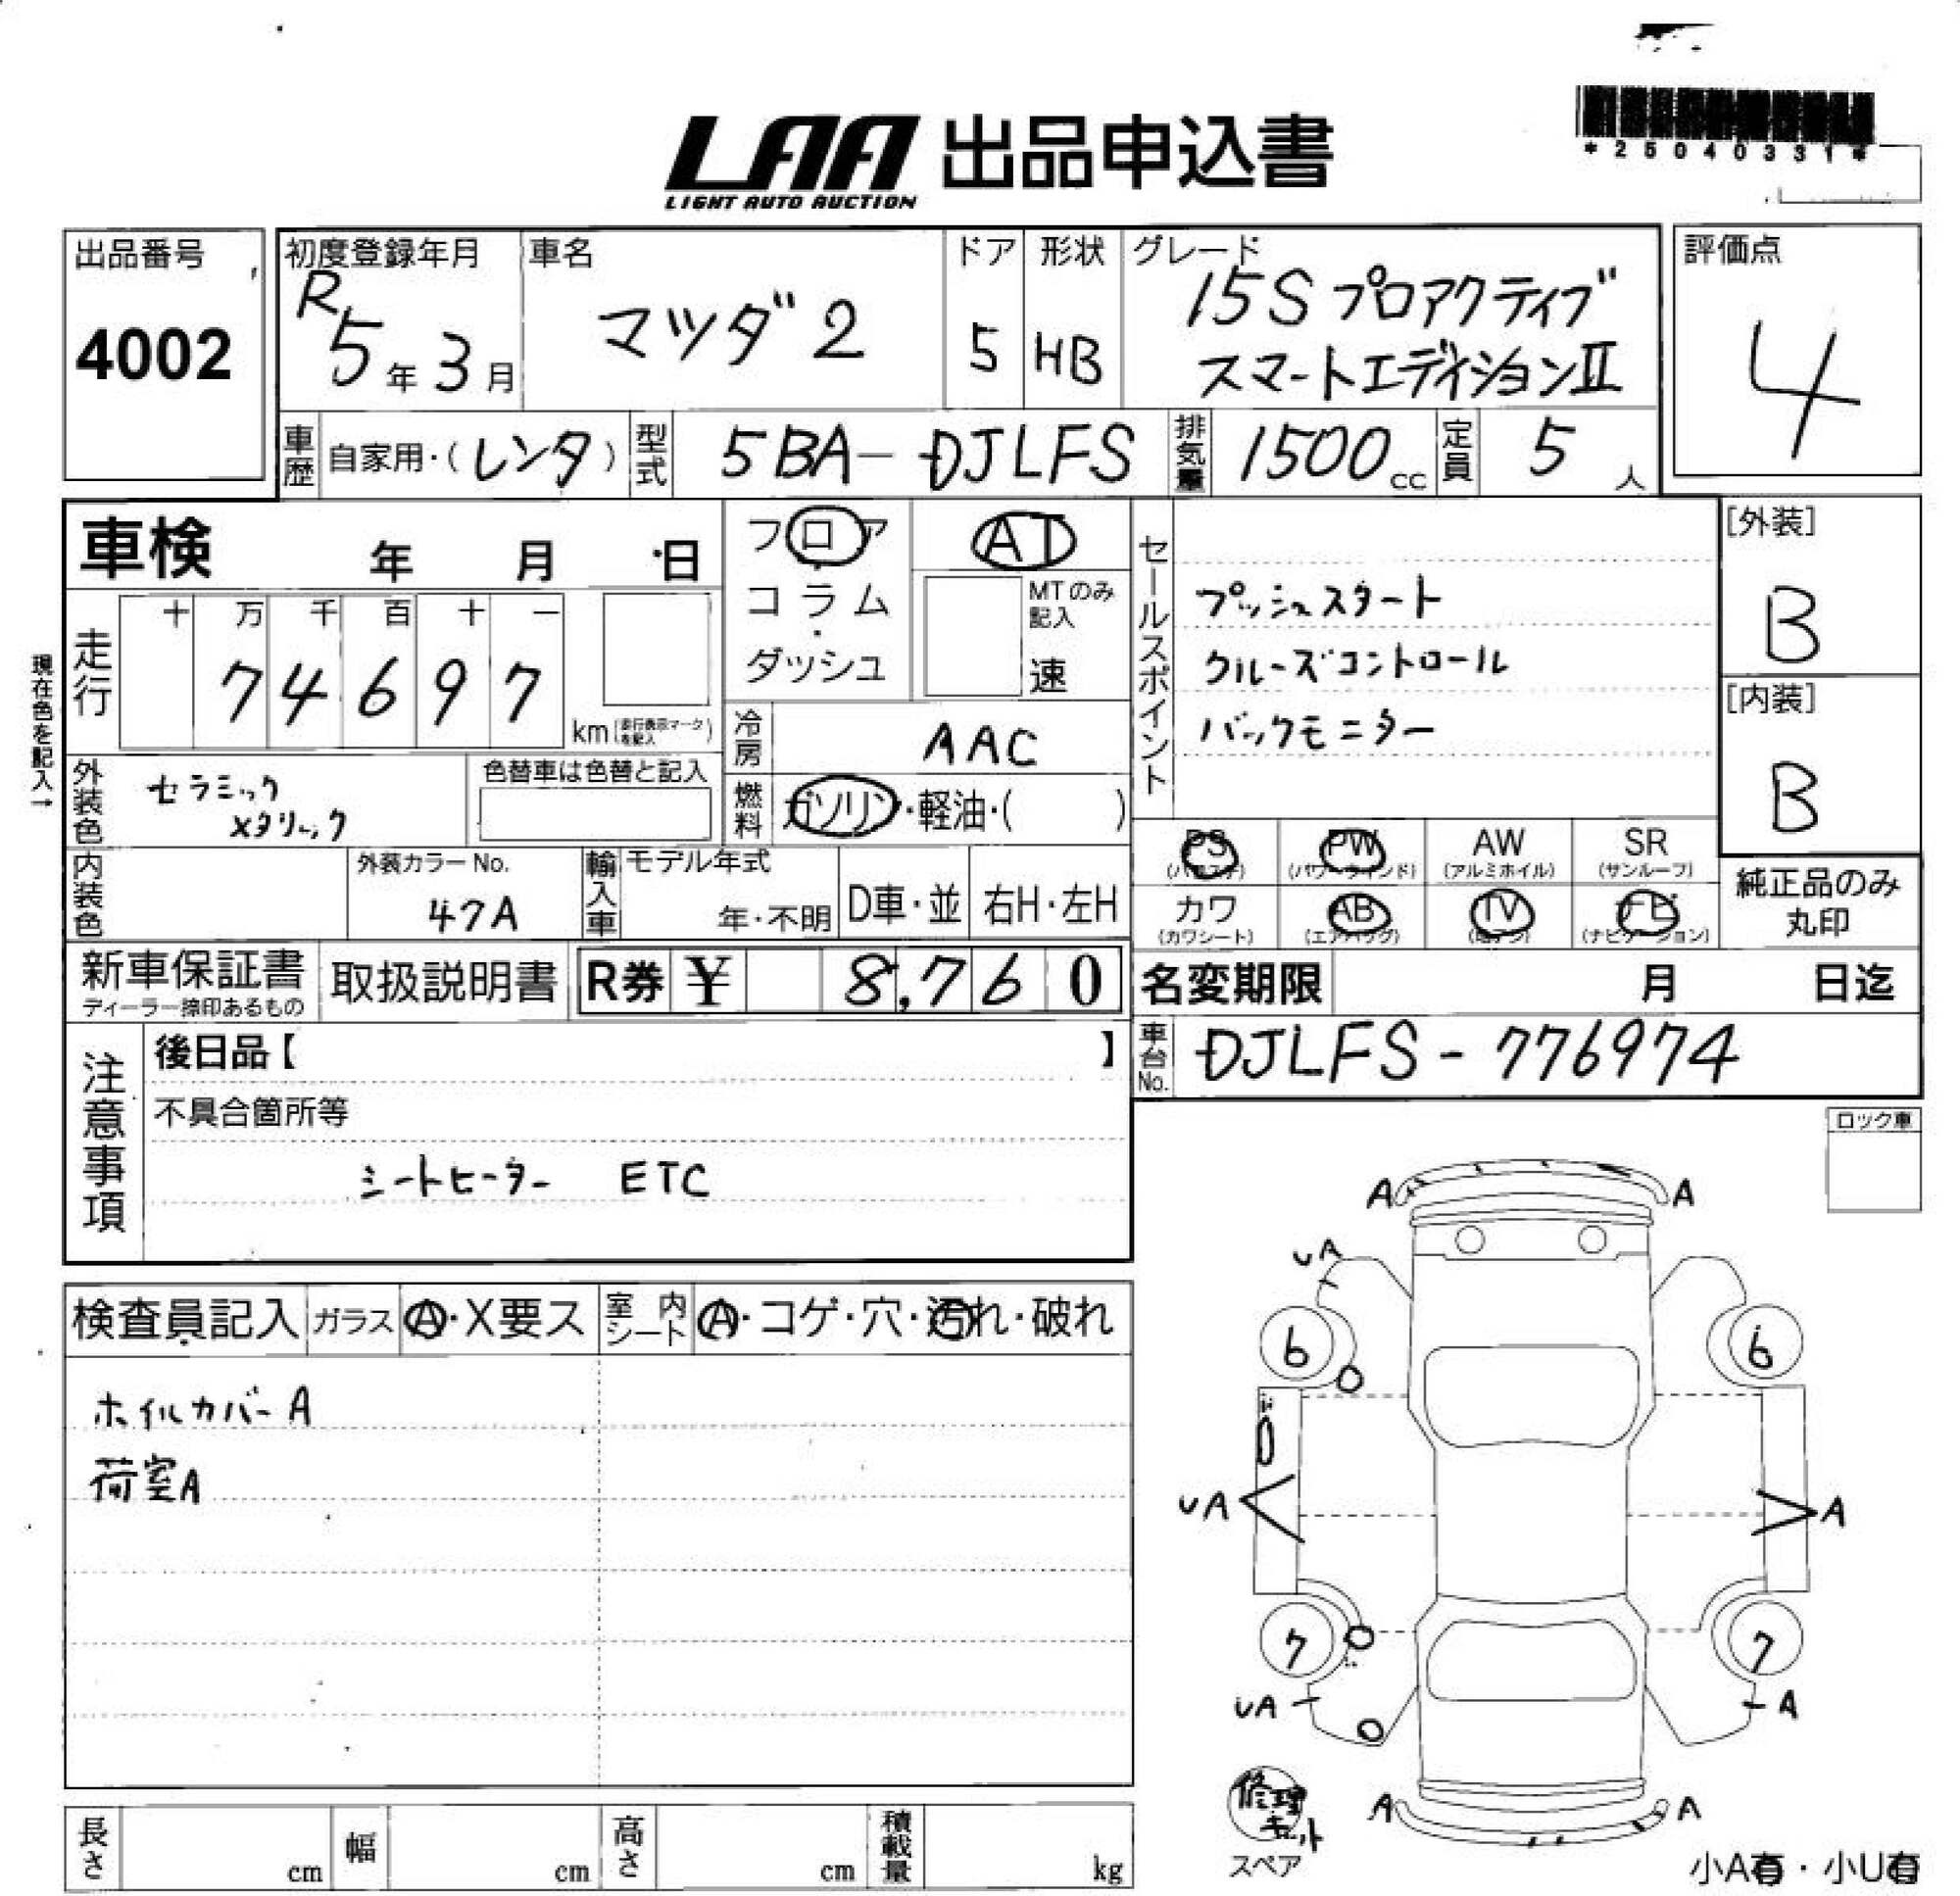 *25040331*
LAA 出品申込書
LIGHT AUTO AUCTION
出品番号
4002
初度登録年月
R5年3月
車名
マツダ2
ドア
5
形状
HB
グレード
15S プロアクティブ
スマートエディションⅡ
評価点
4
車歴
自家用・(レンタ)
型式
5BA-DJLFS
排気量
1500cc
定員
5人
車検 年 月 日
現在色を記入→
走行
十 万 千 百 十 一
7 4 6 9 7
km(走行表示マークを記入)
フロア
・
コラム
・
ダッシュ
AT
MTのみ記入
速
冷房
AAC
燃料
ガソリン・軽油・( )
セールスポイント
プッシュスタート
クルーズコントロール
バックモニター
[外装]
B
[内装]
B
外装色
セラミック
メタリック
色替車は色替と記入
内装色
外装カラーNo.
47A
輸入車
モデル年式
年・不明
D車・並
右H・左H
PS
(パワステ)
PW
(パワーウインド)
AW
(アルミホイル)
SR
(サンルーフ)
カワ
(カワシート)
AB
(エアバッグ)
TV
(地デジ)
ナビ
(ナビゲーション)
純正品のみ
丸印
新車保証書
ディーラー捺印あるもの
取扱説明書
R券 ¥ 8,760
名変期限 月 日迄
車台No.
DJLFS-776974
注意事項
後日品【 】
不具合箇所等
シートヒーター ETC
ロック車
検査員記入
ガラス
A・X要ス
室内シート
A・コゲ・穴・汚れ・破れ
ホイルカバーA
荷室A
A A
UA
6 6
UA A
7 7
UA A
修理キット
スペア
A A
小A有・小U有
長さ cm
幅 cm
高さ cm
積載量 kg